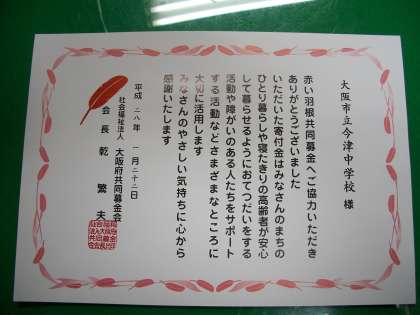 大阪市立今津中学校 様
赤い羽根共同募金へご協力いただき
ありがとうございました
いただいた寄付金はみなさんのまちの
ひとり暮らしや寝たきりの高齢者が安心
して暮らせるようにおてつだいをする
活動や障がいのある人たちをサポート
する活動などさまざまなところに
大切に活用します
みなさんのやさしい気持ちに心から
感謝いたします
平成二八年 一月二十二日
社会福祉法人 大阪府共同募金会
会長 乾 繁夫